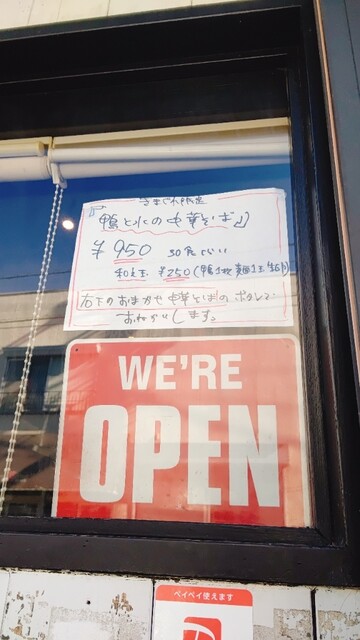 きまぐれ限定
『鴨と水の中華そば』
¥950 30食くらい
和え玉 ¥250(鴨1枚 麺1玉 生卵)
右下のおまかせ中華そばのボタンで
おねがいします。
WE'RE
OPEN
ペイペイ使えます